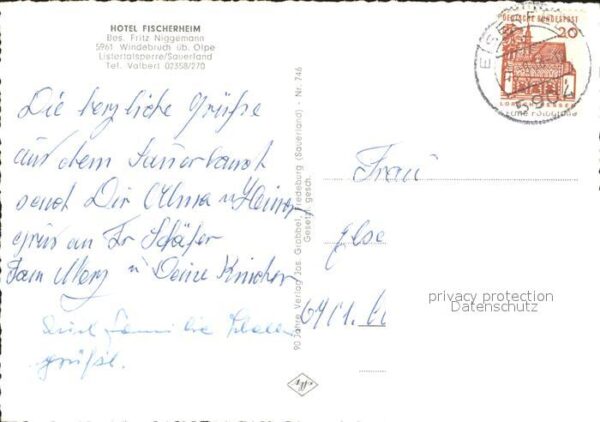 HOTEL FISCHERHEIM
Bes. Fritz Niggemann
5961 Windebruch üb. Olpe
Listertalsperre/Sauerland
Tel. Valbert 02358/270
Die herzliche Grüße
aus dem Sauerland
sendet Dir Alma u Heiner
grüß an Fr Schäfer
Fam Merz u Deine Kinder
Auch Familie
grüßt.
90 Jahre Verlag Jos. Grobbel, Fredeburg (Sauerland) - Nr. 746
Gesetzl. gesch.
DEUTSCHE BUNDESPOST
20
5904
Frau
Else
privacy protection
Datenschutz